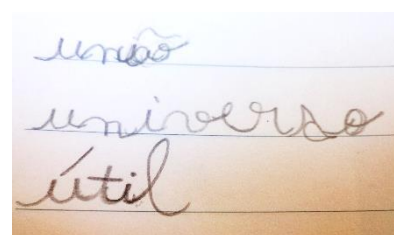 união
universo
útil